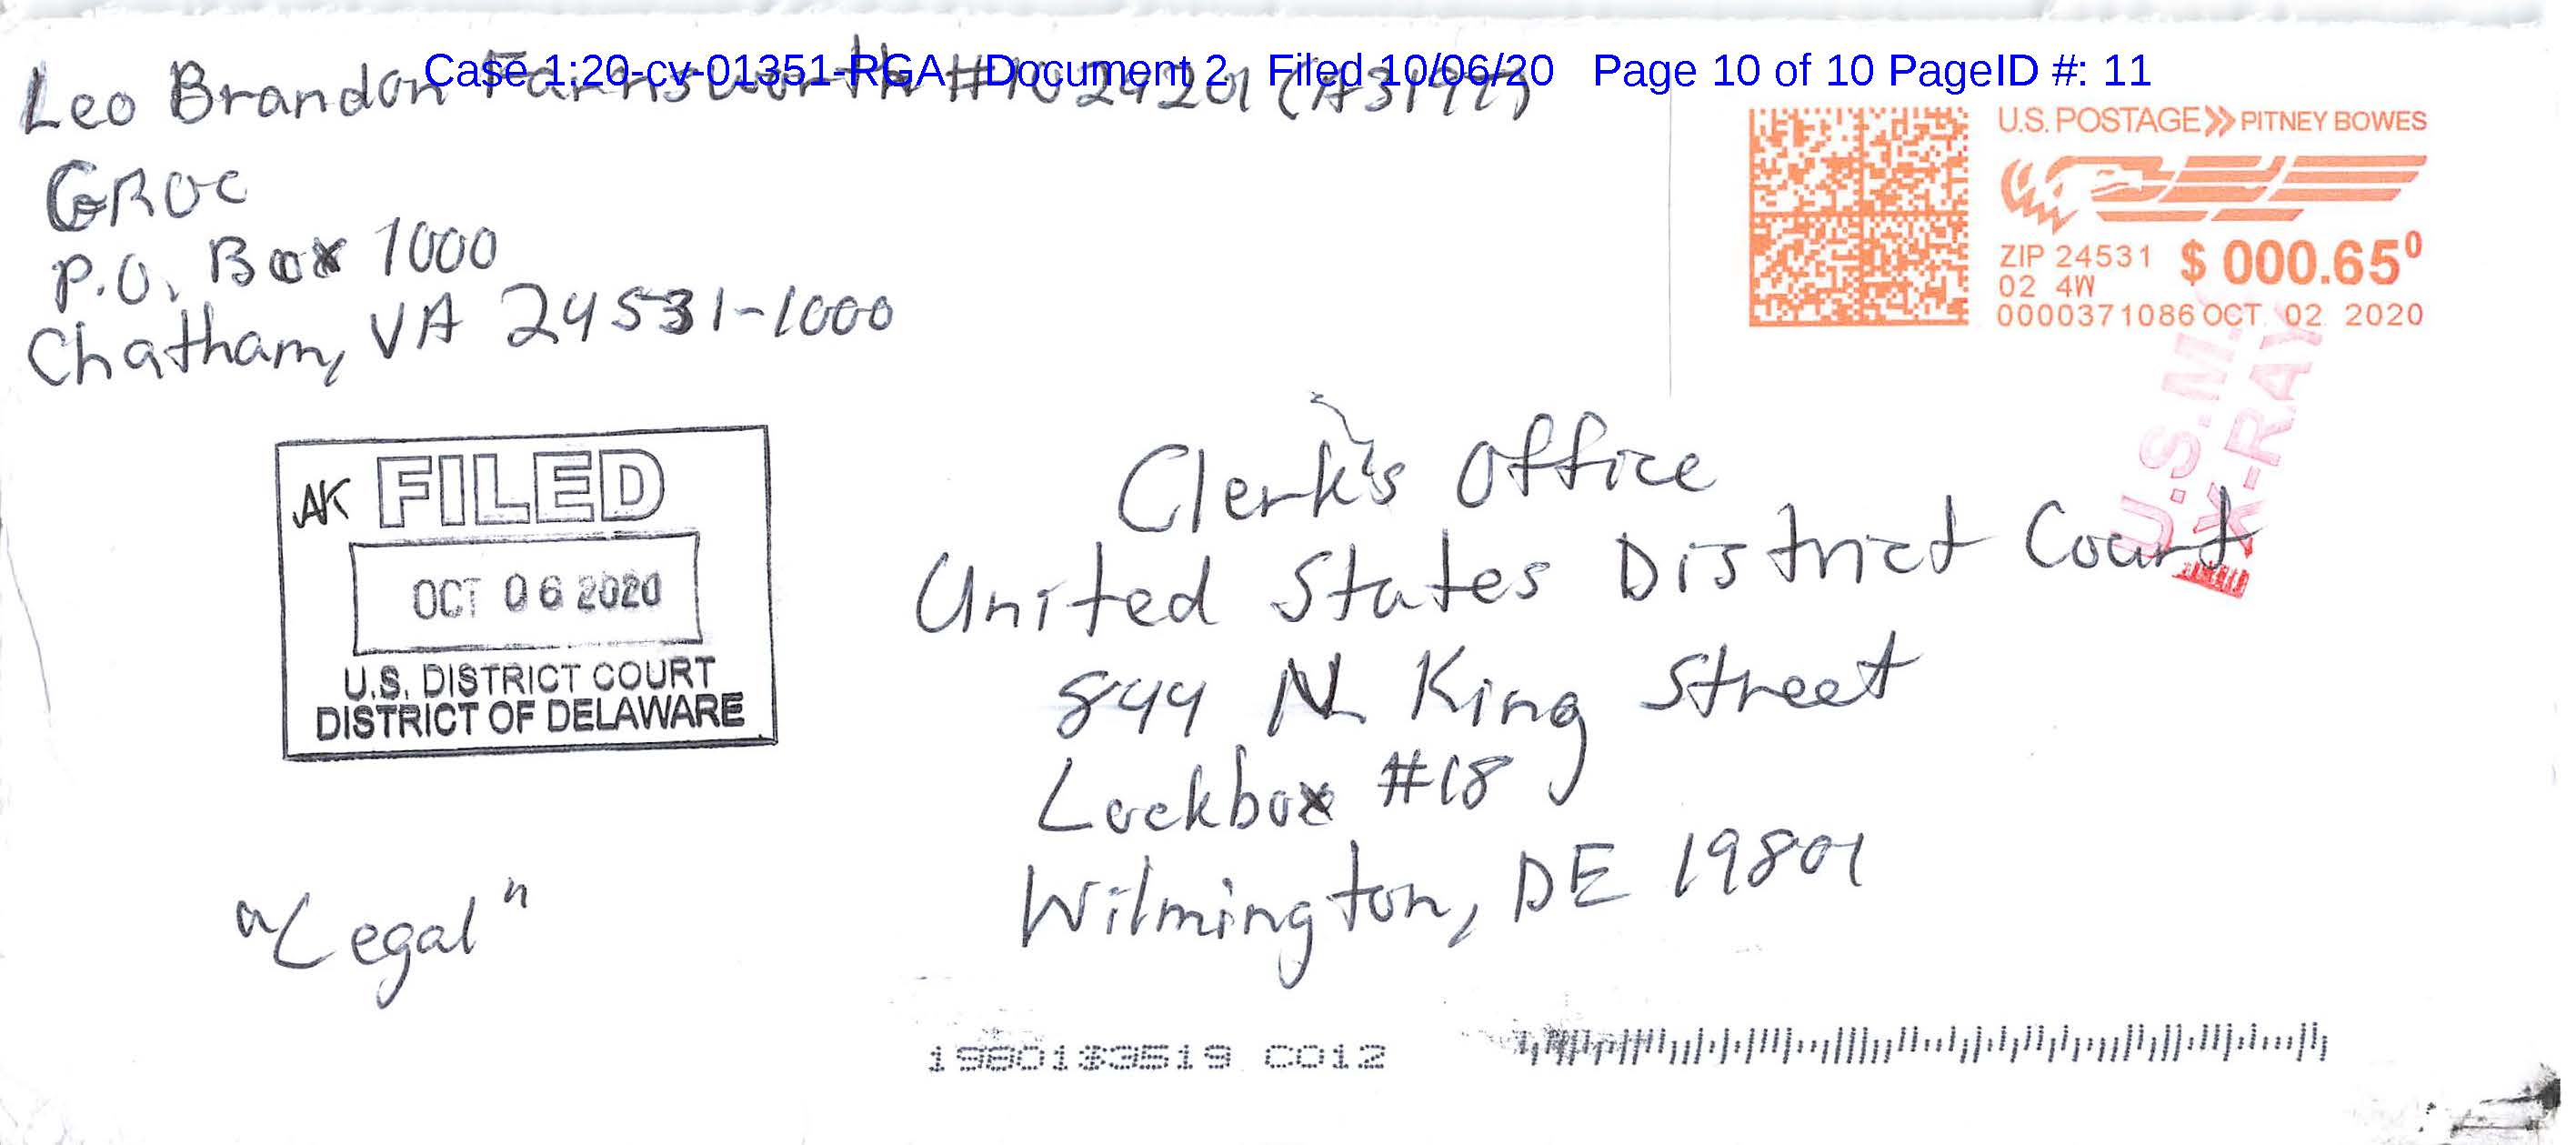 Case 1:20-cv-01351-RGA Document 2 Filed 10/06/20 Page 10 of 10 PageID #: 11
Leo Brandon Farnsworth
GROC
P.O. Box 1000
Chatham, VA 24531-1000
U.S. POSTAGE PITNEY BOWES
ZIP 24531 $ 000.65⁰
02 4W
0000371086 OCT 02 2020
U.S.M.
X-RAY
AK FILED
OCT 06 2020
U.S. DISTRICT COURT
DISTRICT OF DELAWARE
Clerk's Office
United States District Court
844 N King Street
Lockbox #18
Wilmington, DE 19801
"Legal"
1980133519 C012